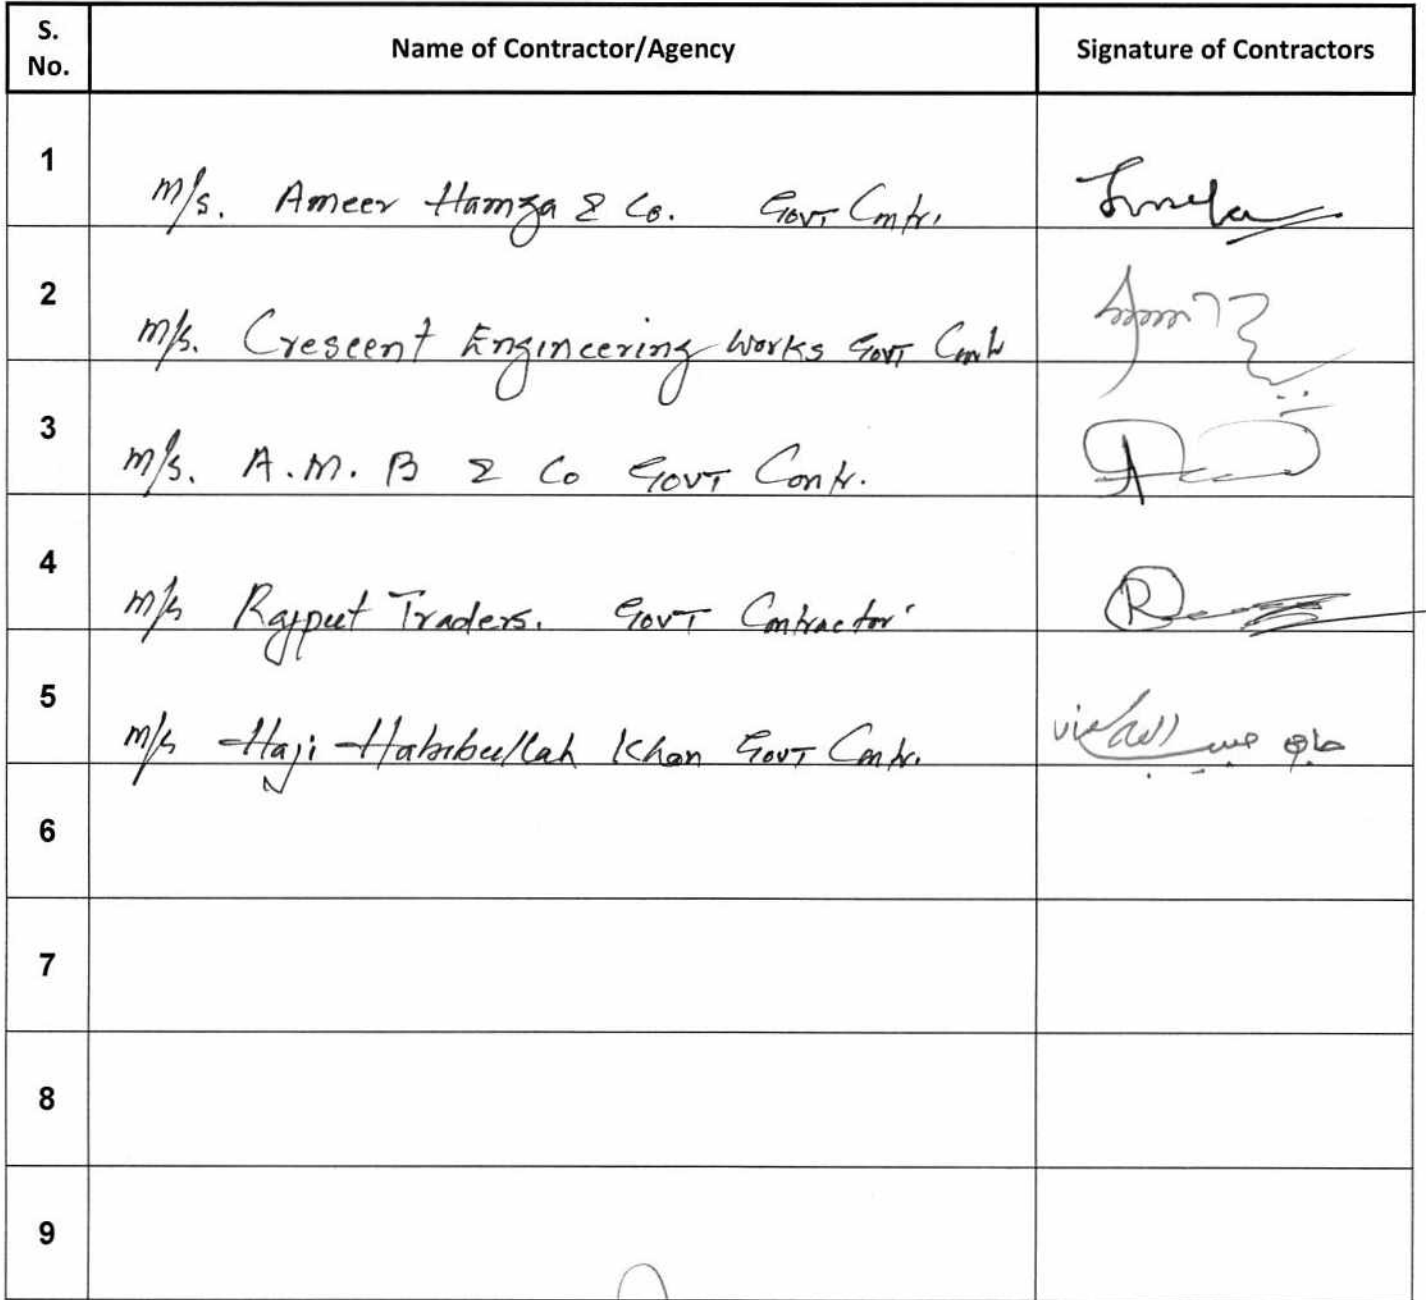 S. No. Name of Contractor/Agency Signature of Contractors
1 M/s. Ameer Hamza & Co. Govt Contr.
2 M/s. Crescent Engineering Works Govt Contr
3 M/s. A.M.B & Co Govt Contr.
4 M/s Rajput Traders. Govt Contractor
5 M/s Haji Habibullah Khan Govt Contr. حاجی حبیب اللہ خان
6
7
8
9